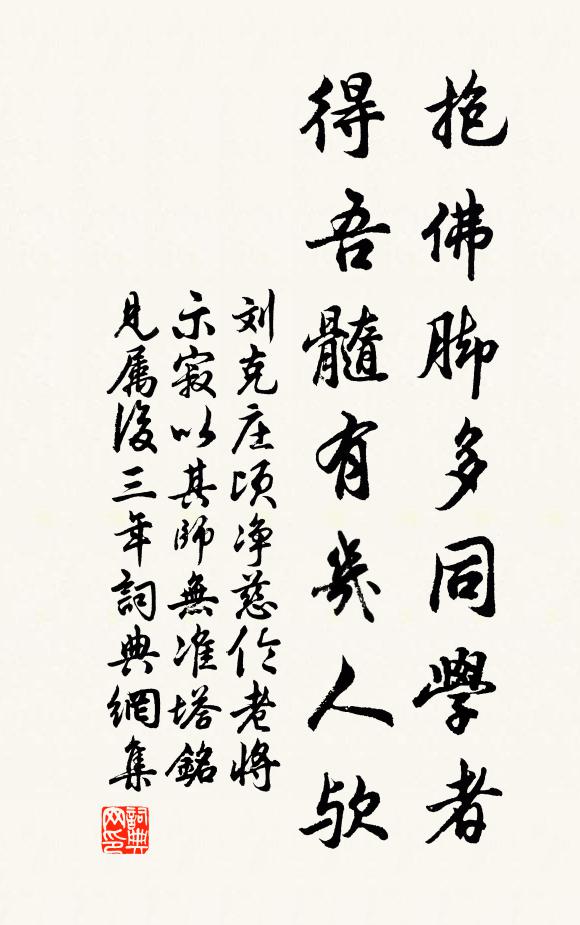 抱佛脚多同學者
得吾髓有幾人歟
刘克庄頃净慈伦老將
示寂以其師無准塔銘
见属後三年詞典網集
詞典网印